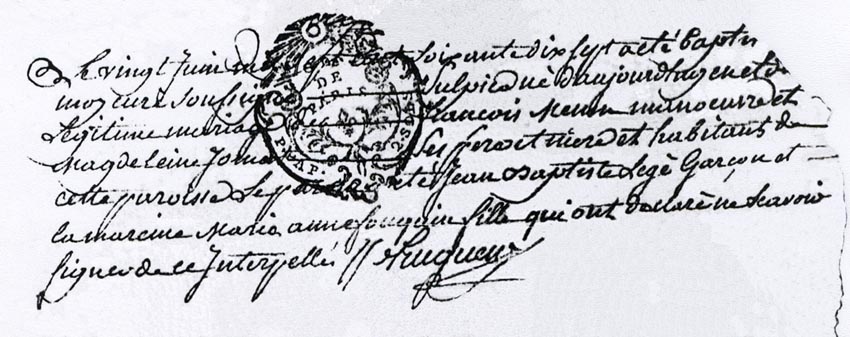 Le vingt Juin mil sept cent soixante dix sept a été Baptisé
moy curé soussigné Sulpice né d'aujourd'huy en et de
Legitime mariage François manoeuvre et
Magdeleine ses pere et mere et habitant de
cette paroisse Le parain a été Jean Baptiste Legé Garçon et
la mareine Maria anne fouquin fille qui ont declaré ne scavoir
signer de ce Interpellés
DE
PARIS
P. PAP.